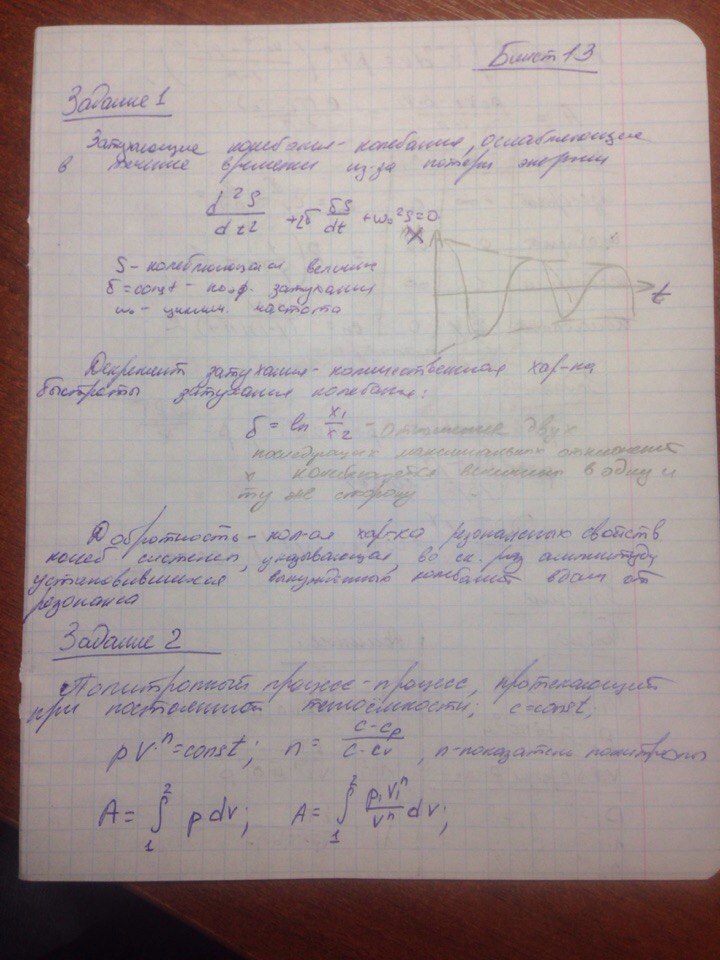 Билет 13
Задание 1
Затухающие колебания - колебания, ослабляющие
в течение времени из-за потери энергии
d²S/dt² + 2δ δS/dt + ω₀²S = 0
X
t
S - колеблющаяся величин
δ = const - коэф. затухания
ω₀ - циклич. частота
Декремент затухания - количественная хар-ка
быстроты затухания колебани:
δ = ln x₁/x₂ - отношение двух
последующих максимальных отклонений
x колеблющейся величины в одну и
ту же сторону
Добротность - кол-ая хар-ка резонансных свойств
колеб системы, указывающая, во ск. раз амплитуду
установившихся вынужденных колебаний вдали от
резонанса
Задание 2
Политропный процесс - процесс, протекающий
при постоянной теплоёмкости; c = const;
pVⁿ = const; n = (c - cp)/(c - cv), n - показатель политропы
A = ∫₁² p dV; A = ∫₁² p₁V₁ⁿ/Vⁿ dV;